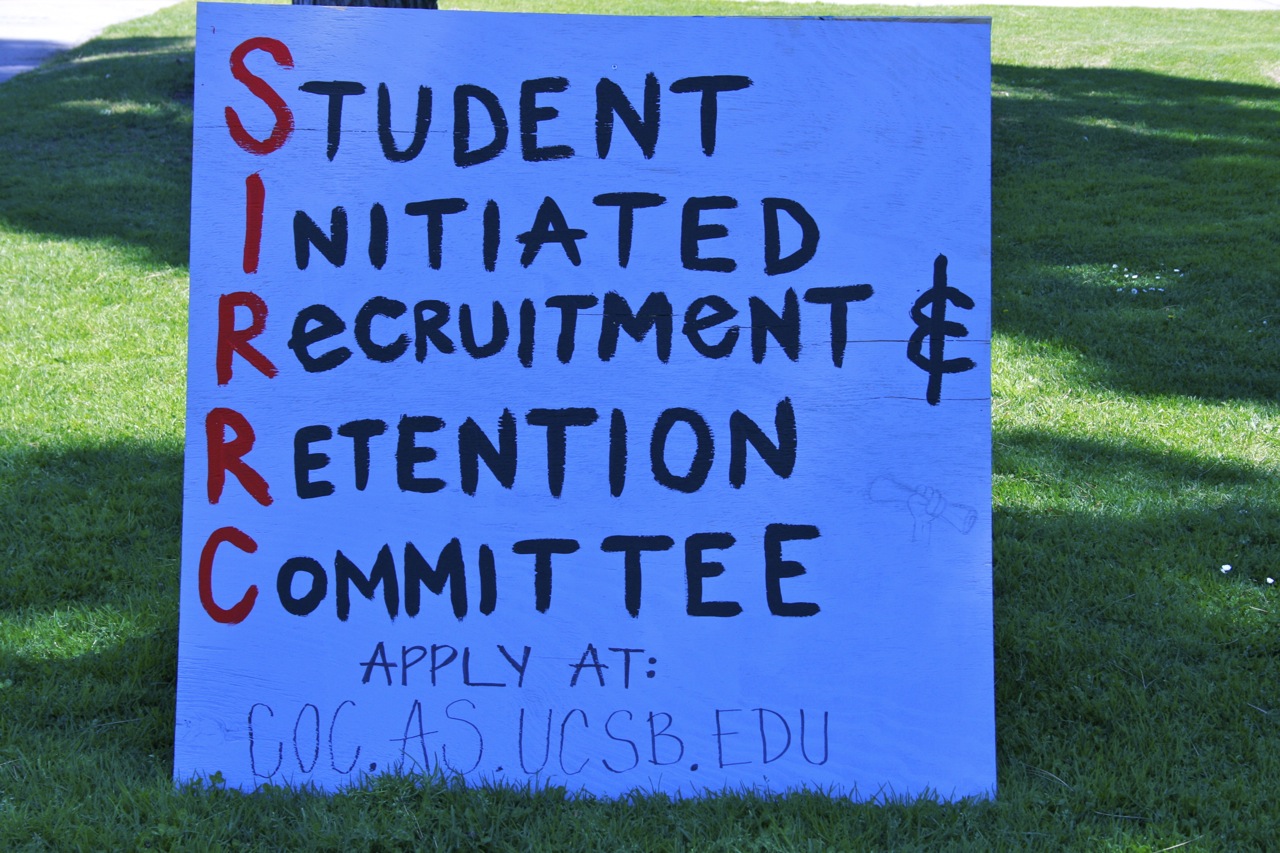 STUDENT
INITIATED
ReCRUITMeNT &
RETENTION
COMMITTEE
APPLY AT:
COC.AS.UCSB.EDU